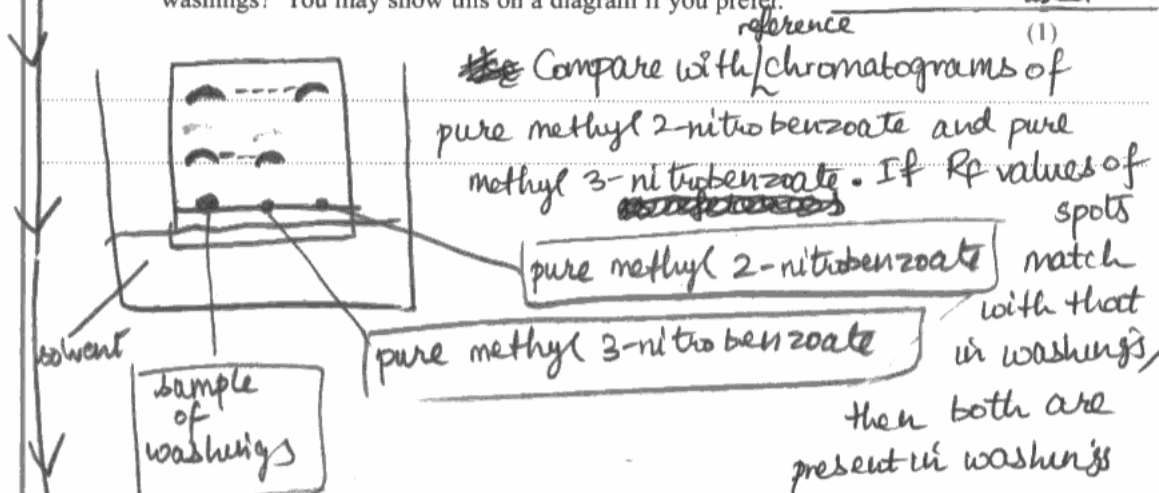 washings? You may show this on a diagram if you prefer.
(1)
reference
Compare with chromatograms of
pure methyl 2-nitrobenzoate and pure
methyl 3-nitrobenzoate. If Rf values of
spots
match
with that
in washings,
then both are
present in washings
pure methyl 2-nitrobenzoate
pure methyl 3-nitrobenzoate
solvent
sample
of
washings